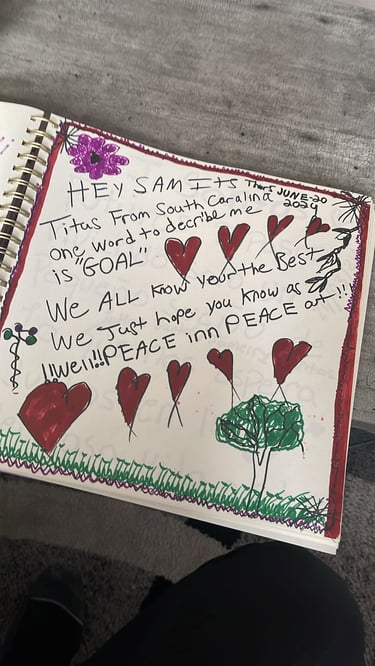 HEY SAM Its Thurs JUNE-20
2024
Titus From South Caralina
one word to decribe me
is "GOAL"
We ALL know your the Best
We Just hope you know as
!!Well!! PEACE inn PEACE out!!